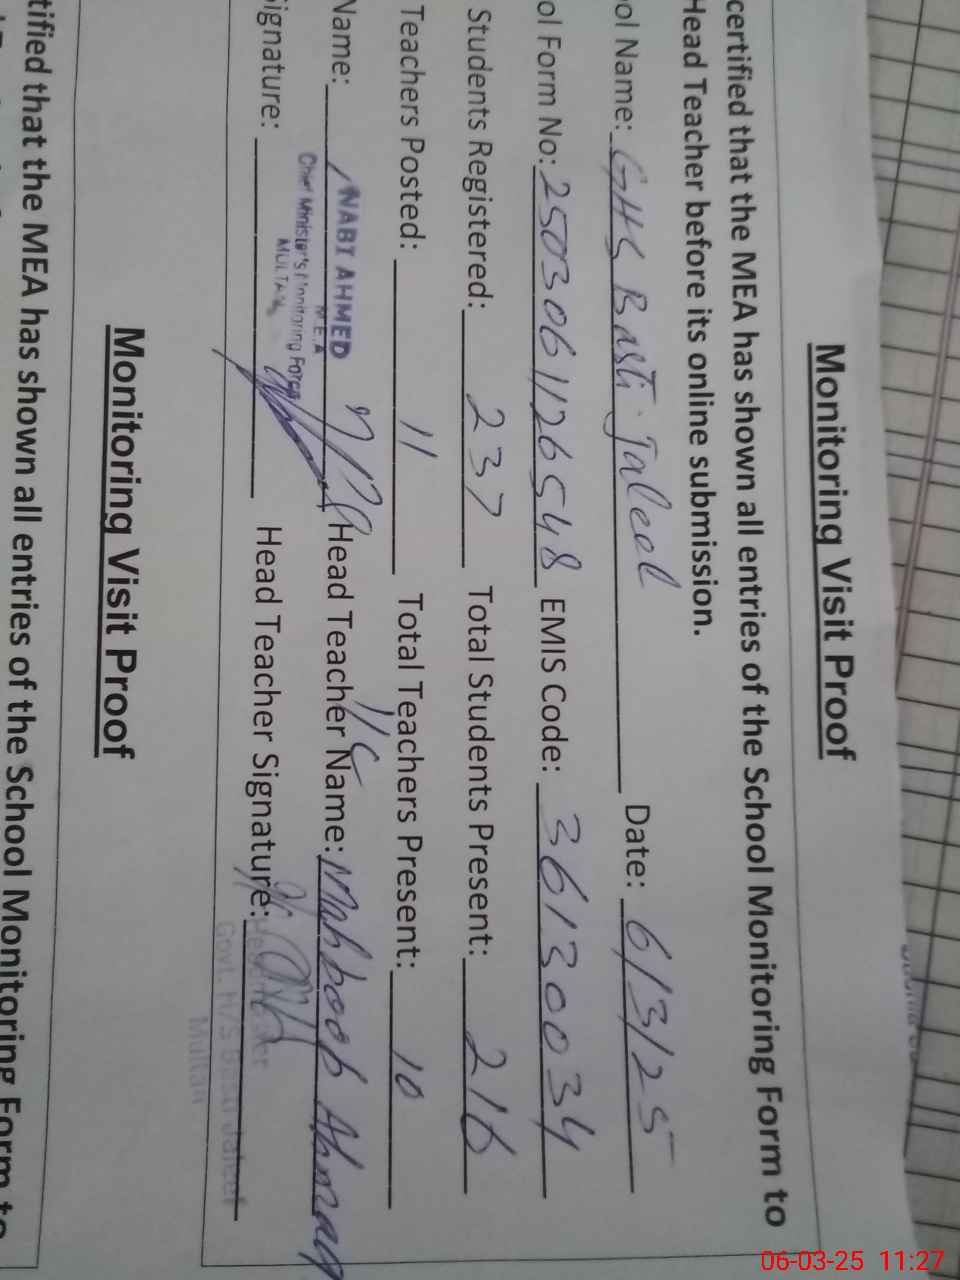 Monitoring Visit Proof
certified that the MEA has shown all entries of the School Monitoring Form to
Head Teacher before its online submission.
ol Name: GHS Basti Jaleel Date: 6/3/25
ol Form No: 2503061126548 EMIS Code: 36130034
Students Registered: 237 Total Students Present: 216
Teachers Posted: 11 Total Teachers Present: 10
Name: NABI AHMED Head Teacher Name: Mahboob Ahmad
M.E.A
Chief Minister's Monitoring Force
MULTAN
ignature: Head Teacher Signature:
Govt. H/S Basti Jaleel
Multan
Monitoring Visit Proof
tified that the MEA has shown all entries of the School Monitoring Form to
06-03-25 11:27